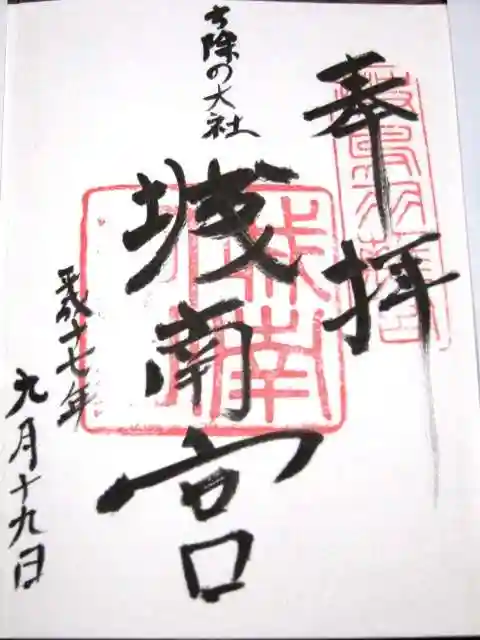 奉拝
方除の大社
城南宮
平成十七年
九月十九日